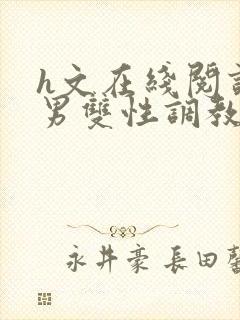 h文在綫閱
男雙性調教
永井豪 長田